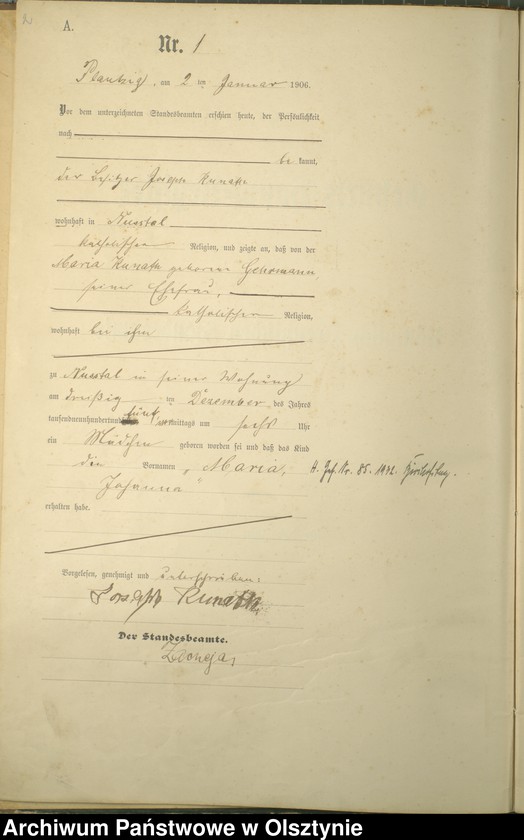 A.
Nr. 1
Plautzig, am 2 ten Januar 1906.
Vor dem unterzeichneten Standesbeamten erschien heute, der Persönlichkeit
nach
be kannt,
der Besitzer Joseph Kunath
wohnhaft in Nusstal
katholischen Religion, und zeigte an, daß von der
Maria Kunath geborene
seiner Ehefrau,
katholischen Religion,
wohnhaft bei ihm
zu Nusstal in seiner Wohnung
am dreißig ten Dezember des Jahres
tausendneunhundert fünf mittags um sechs Uhr
ein Mädchen geboren worden sei und daß das Kind
die Vornamen „Maria, H. Gef. Nr. 85. 1942.
Johanna“
erhalten habe.
Vorgelesen, genehmigt und unterschrieben:
Joseph Kunath
Der Standesbeamte.
Archiwum Państwowe w Olsztynie